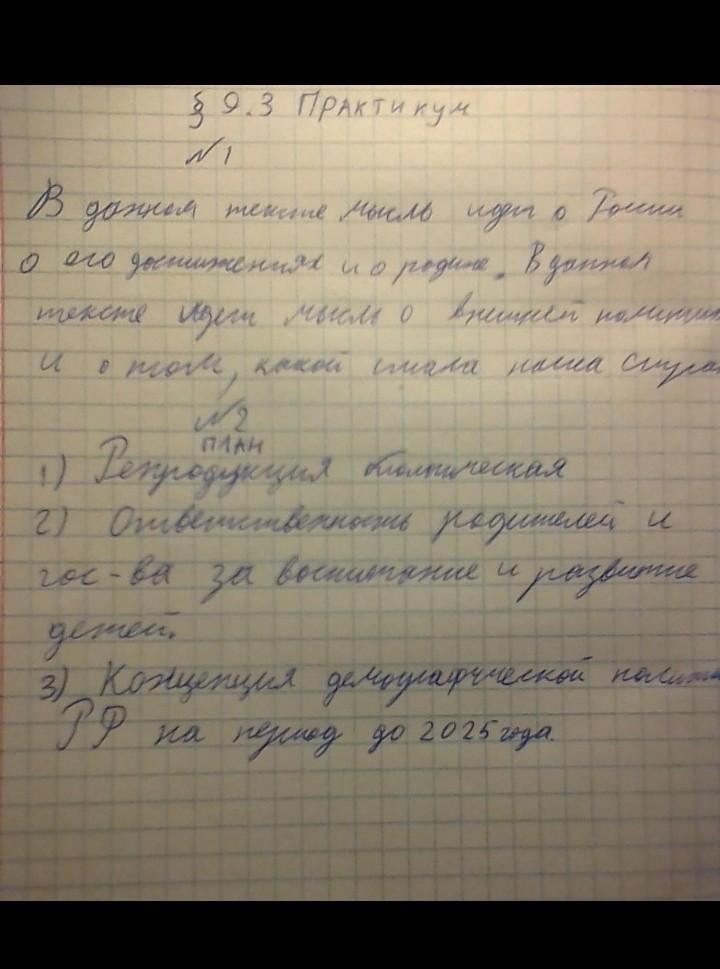 § 9.3 Практикум
№1
В данном тексте мысль идет о России
о его достижениях и о родине. В данном
тексте идет мысль о внешней полити
И о том, какой стала наша стра
№2
ПЛАН
1) Репродукция биологическая
2) Ответственность родителей и
гос-ва за воспитание и развитие
детей.
3) Концепция демографической полити
РФ на период до 2025 года.